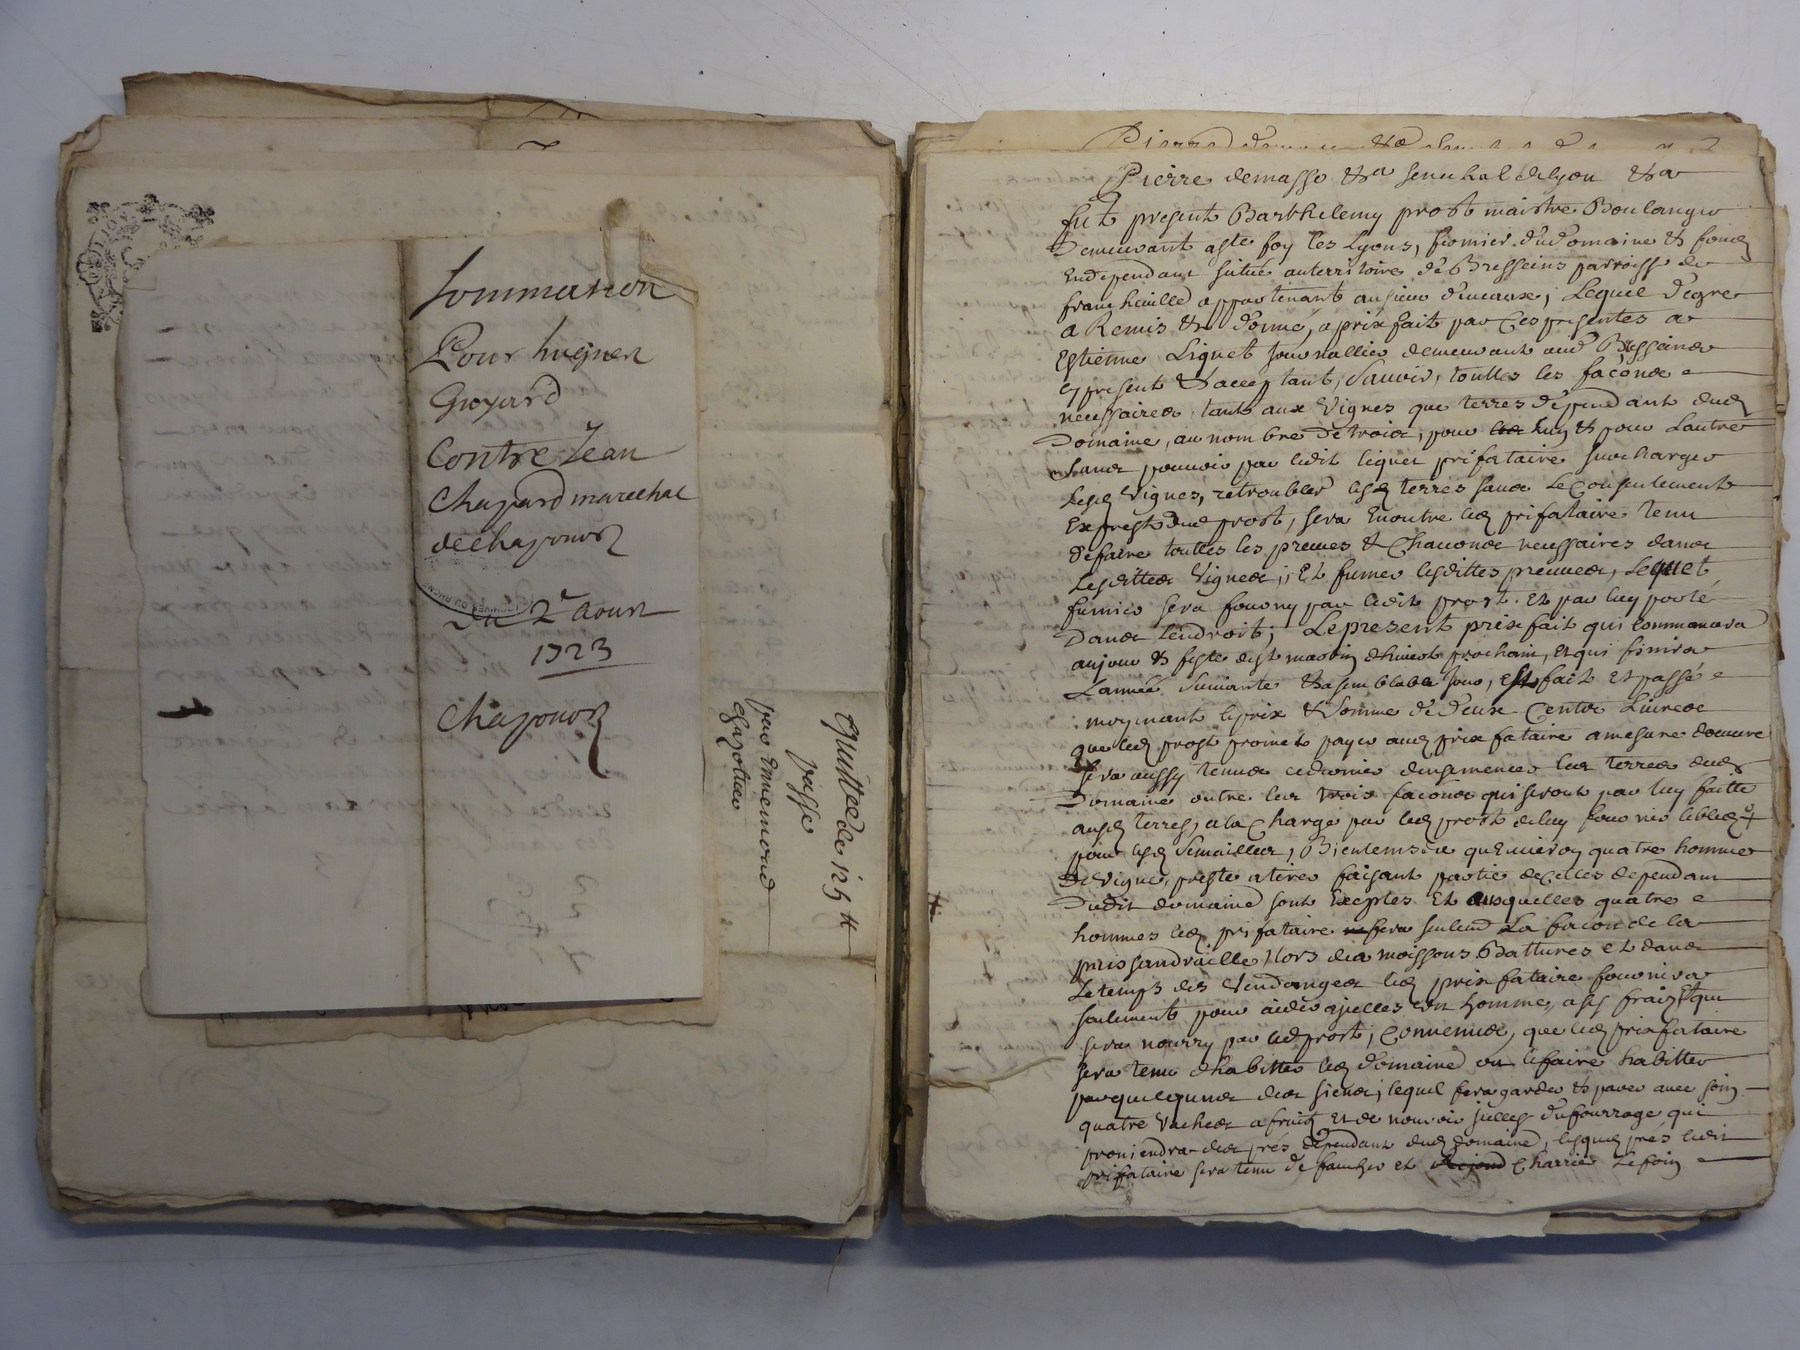 Sommation
Pour hugues
Groyard
Contre Jean
Chazard marechal
de chaponost
Du 2e Aoust
1723
Chaponost
Quittée de 125 ₶
passé
par Ennemond
Chapottier
Pierre demasso &a senechal de lyon &a
fut present Barthelemy prost maistre Boulanger
Demeurant a ste foy les Lyons, fermier du Domaine & fonds
En dependant situé au territoire de Bresseins parroisse de
francheuille appartenant au sieur ; Lequel de gre
a Remis & donné, a prix fait par Ces presentes a
Estienne Liquet Journallier demeurant aud Bresseins
cy present & acceptant, Sauoir, touttes les façons
necessaires tant aux Vignes que terres dependant dud
Domaine, au nombre de trois, pour luy & pour Lautre
sans pouuoir par ledit liquet prifataire surcharger
lesd Vignes, retroubler lesd terres sans Le Consentement
Exprest dud prost, sera Enoutre led prifataire tenu
de faire touttes les preuues & Chauons necessaires dans
Lesdittes Vignes ; Et fumer lesdittes preuues, Lequel
fumier sera fourny par ledit prost. Et par luy porté
Dans lendroit ; Le present prix fait qui Commancera
au jour & feste de st martin dhiuert prochain, Et qui finira
Lannée Suiuante & a semblable jour, Est fait et passé
moyenant le prix & Somme de Deux Cents Liures
que led prost promet payer aud prix fataire a mesure doeuure
sera aussy tenus ce dernier densemencer les terres dud
Domaine outre les trois façons qui seront par luy faitte
ausd terres, a la Charge par led prost de luy fournir le bled
pour lesd Semailles, Bien entendu qu Enuiron quatre hommes
De Vigne, preste a tirer faisant partie de Celles dependant
Dudit domaine sont Exeptes Et ausquelles quatre
hommes led prifataire fera seulemt La facon de la
Lors des moissons Battures et dans
Le temps des Vendanges led prix fataire fournira
seulement pour aider a jcelles un homme, a ses fraiz Et qui
sera nourry par led prost ; Conuenus, que led prix fataire
sera tenu dhabitter led domaine ou le faire habitter
par quelquuns des siens ; lequel fera garder & paver auec soin
quatre Vaches a fruit Et de nourir jcelles du fourrage qui
prouiendra des pres dependant dud domaine, lesquels prés ledit
prifataire sera tenu de faucher et Charrier Le foin